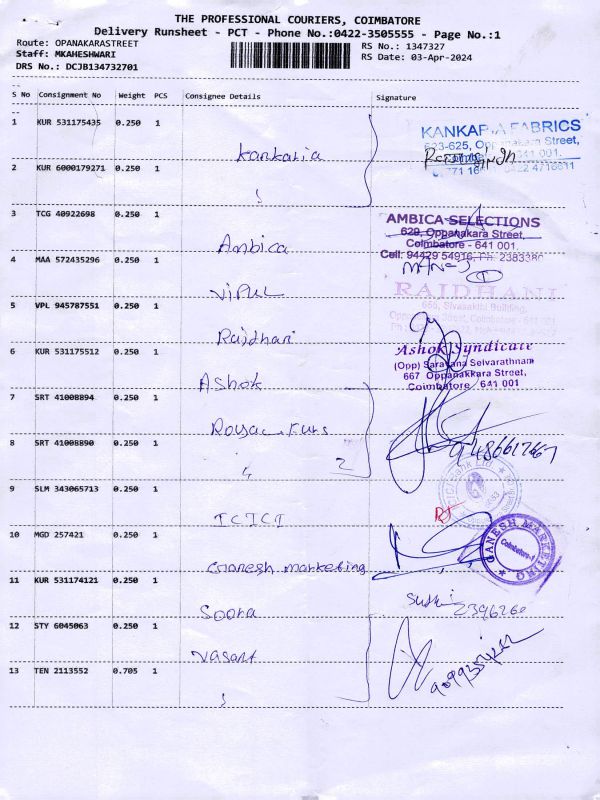 THE PROFESSIONAL COURIERS, COIMBATORE
Delivery Runsheet - PCT - Phone No.:0422-3505555 - Page No.:1
Route: OPANAKARASTREET
RS No.: 1347327
Staff: MKAHESHWARI
RS Date: 03-Apr-2024
DRS No.: DCJB134732701
S No Consignment No Weight PCS Consignee Details Signature
1 KUR 531175435 0.250 1
Kankaria
KANKARIA FABRICS
623-625, Oppanakara Street,
2 KUR 6000179271 0.250 1
3 TCG 40922698 0.250 1
Ambica
AMBICA SELECTIONS
629, Oppanakara Street,
Coimbatore - 641 001.
Cell: 94429 54916, Ph: 2383386
4 MAA 572435296 0.250 1
Vipul
5 VPL 945787551 0.250 1
Rajdhani
RAJDHANI
Sivasakthi Building,
6 KUR 531175512 0.250 1
Ashok
Ashok Syndicate
(Opp) Saravana Selvarathnam
667 Oppanakkara Street,
Coimbatore 641 001
7 SRT 41008894 0.250 1
8 SRT 41008890 0.250 1
2
9 SLM 343065713 0.250 1
ICICI
10 MGD 257421 0.250 1
Ganesh marketing
GANESH MARKETING
Coimbatore-1
11 KUR 531174121 0.250 1
Soora
2396260
12 STY 6045063 0.250 1
Vasant
13 TEN 2113552 0.705 1